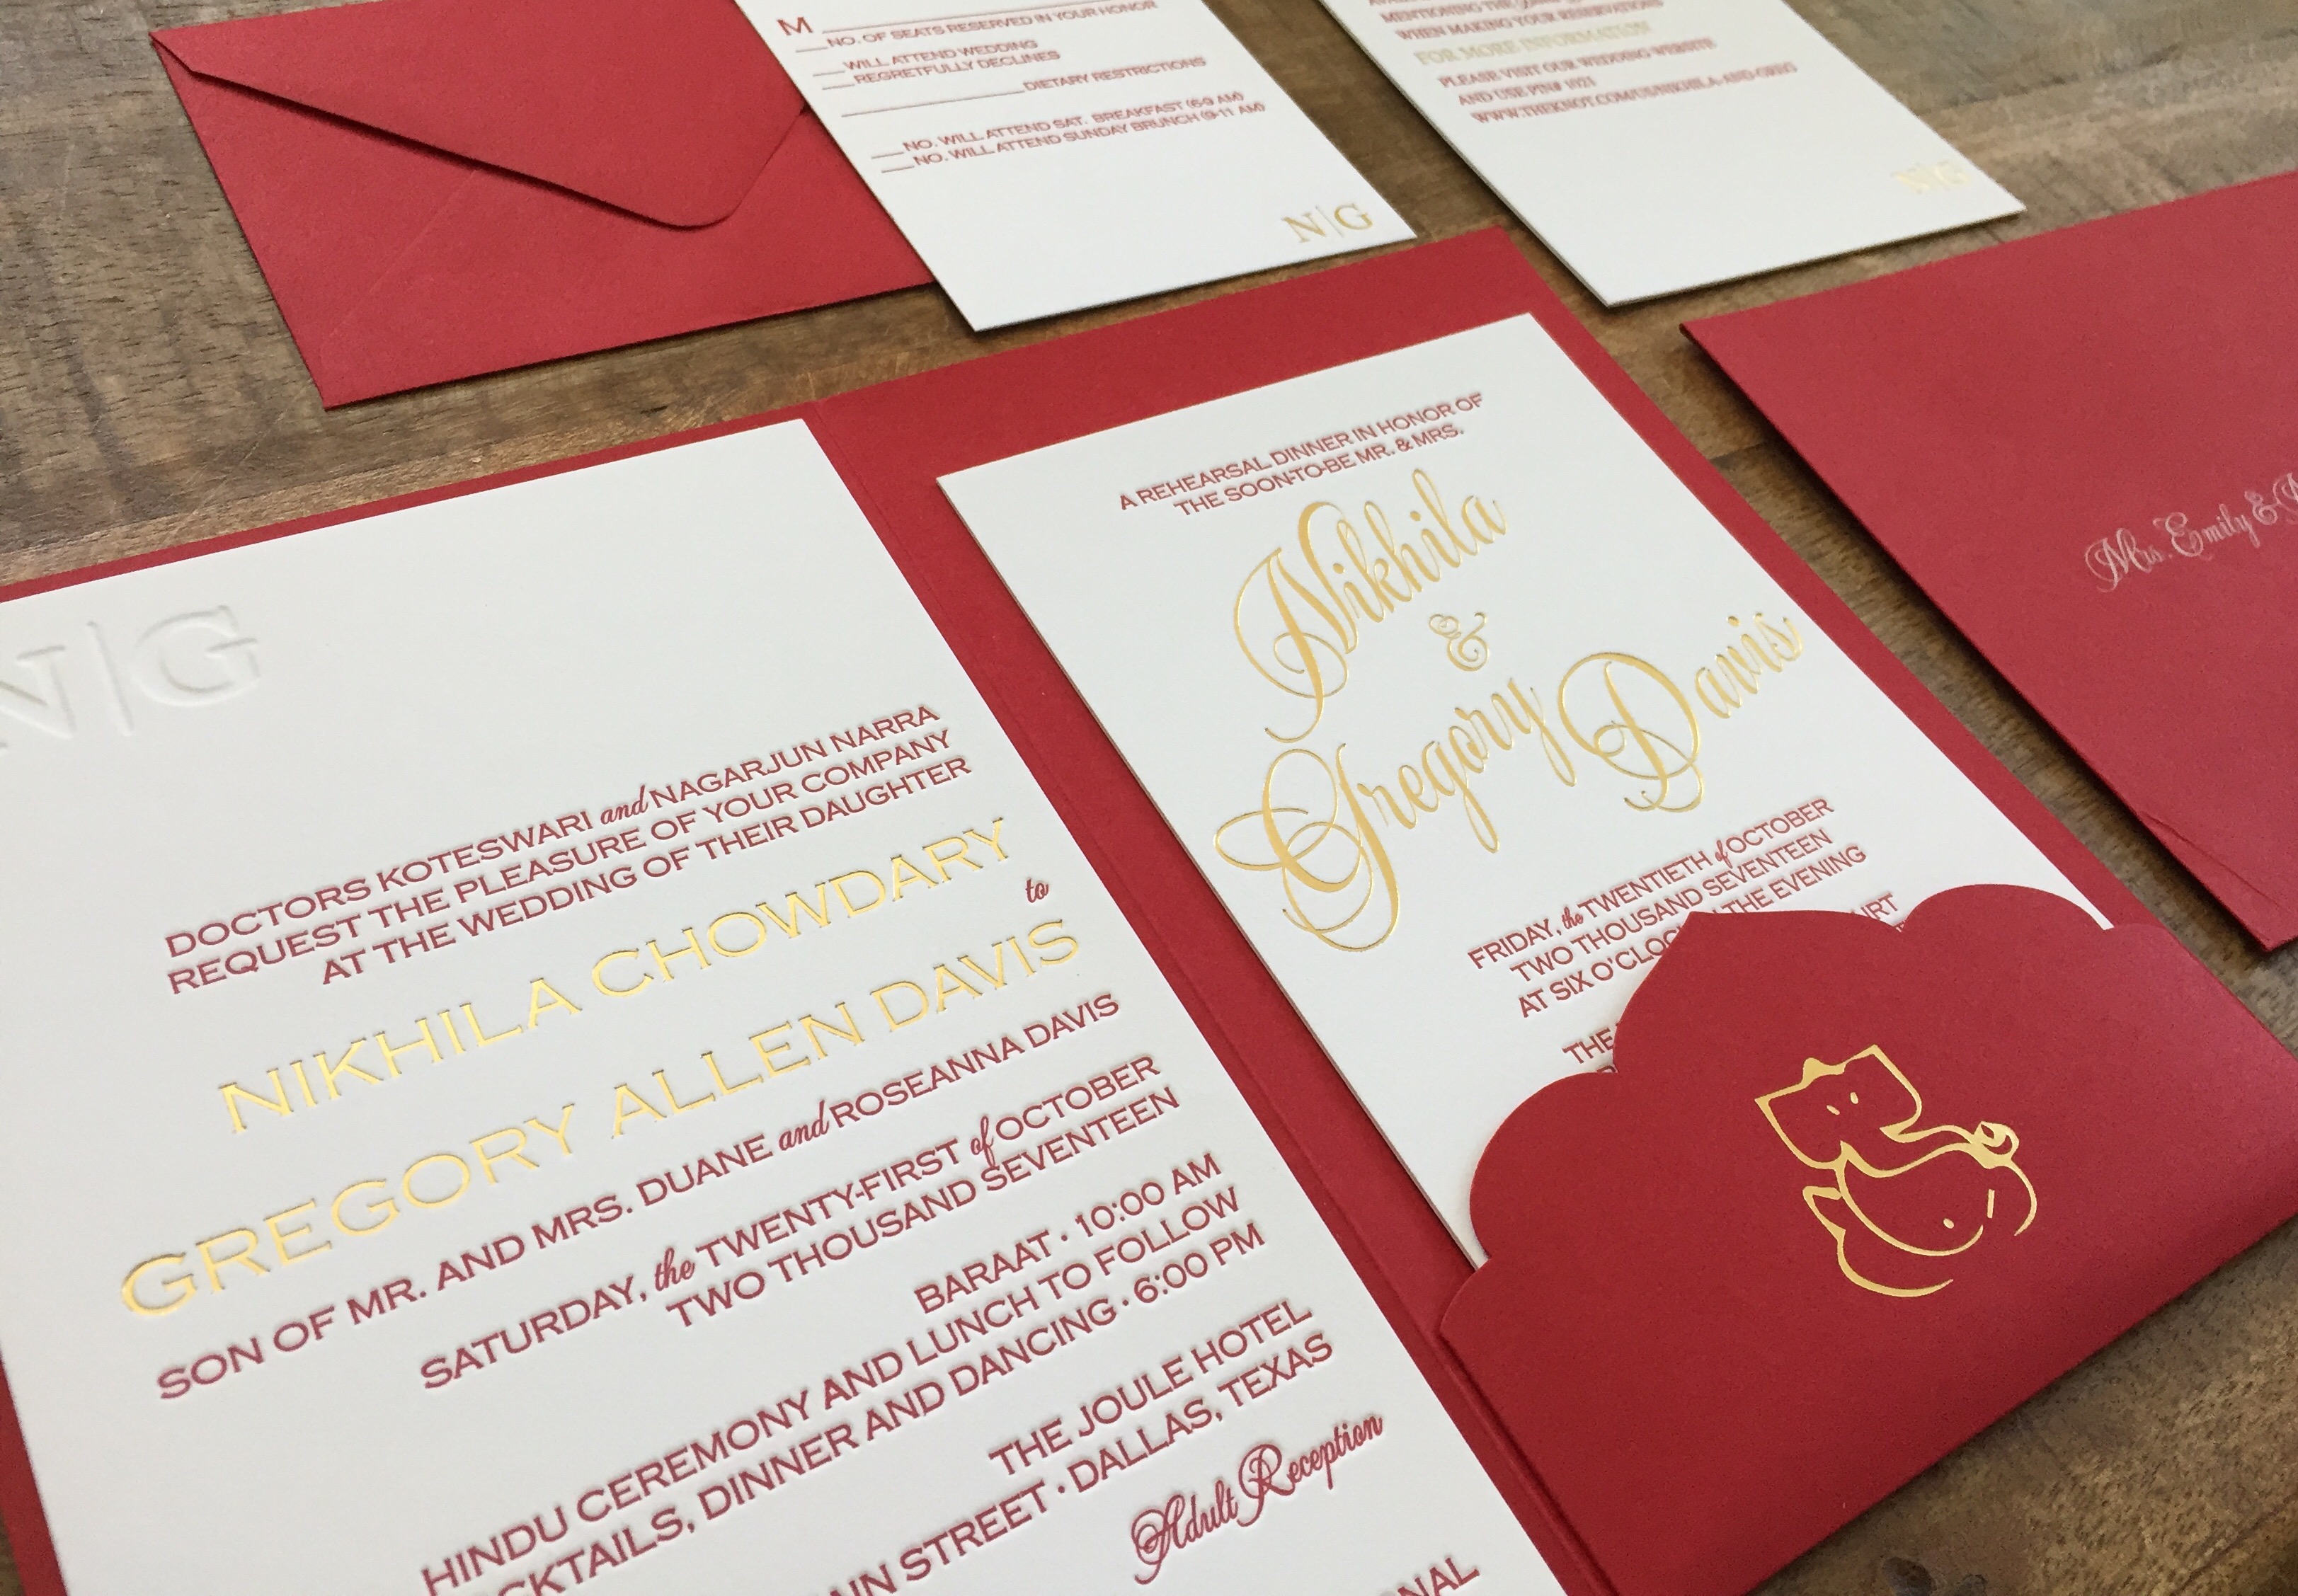 M
___NO. OF SEATS RESERVED IN YOUR HONOR
___WILL ATTEND WEDDING
___REGRETFULLY DECLINES
___DIETARY RESTRICTIONS
___NO. WILL ATTEND SAT. BREAKFAST (6-9 AM)
___NO. WILL ATTEND SUNDAY BRUNCH (9-11 AM)
N|G
MENTIONING THE
WHEN MAKING YOUR RESERVATIONS
FOR MORE INFORMATION
PLEASE VISIT OUR WEDDING WEBSITE
AND USE PIN# 1021
WWW.THEKNOT.COM/US/NIKHILA-AND-GREG
N|G
N|G
DOCTORS KOTESWARI and NAGARJUN NARRA
REQUEST THE PLEASURE OF YOUR COMPANY
AT THE WEDDING OF THEIR DAUGHTER
NIKHILA CHOWDARY
to
GREGORY ALLEN DAVIS
SON OF MR. AND MRS. DUANE and ROSEANNA DAVIS
SATURDAY, the TWENTY-FIRST of OCTOBER
TWO THOUSAND SEVENTEEN
BARAAT · 10:00 AM
HINDU CEREMONY AND LUNCH TO FOLLOW
CKTAILS, DINNER AND DANCING · 6:00 PM
THE JOULE HOTEL
STREET · DALLAS, TEXAS
Adult Reception
A REHEARSAL DINNER IN HONOR OF
THE SOON-TO-BE MR. & MRS.
Nikhila
&
Gregory Davis
FRIDAY, the TWENTIETH of OCTOBER
TWO THOUSAND SEVENTEEN
AT SIX O'CLOC THE EVENING
THE
Mrs. Emily &